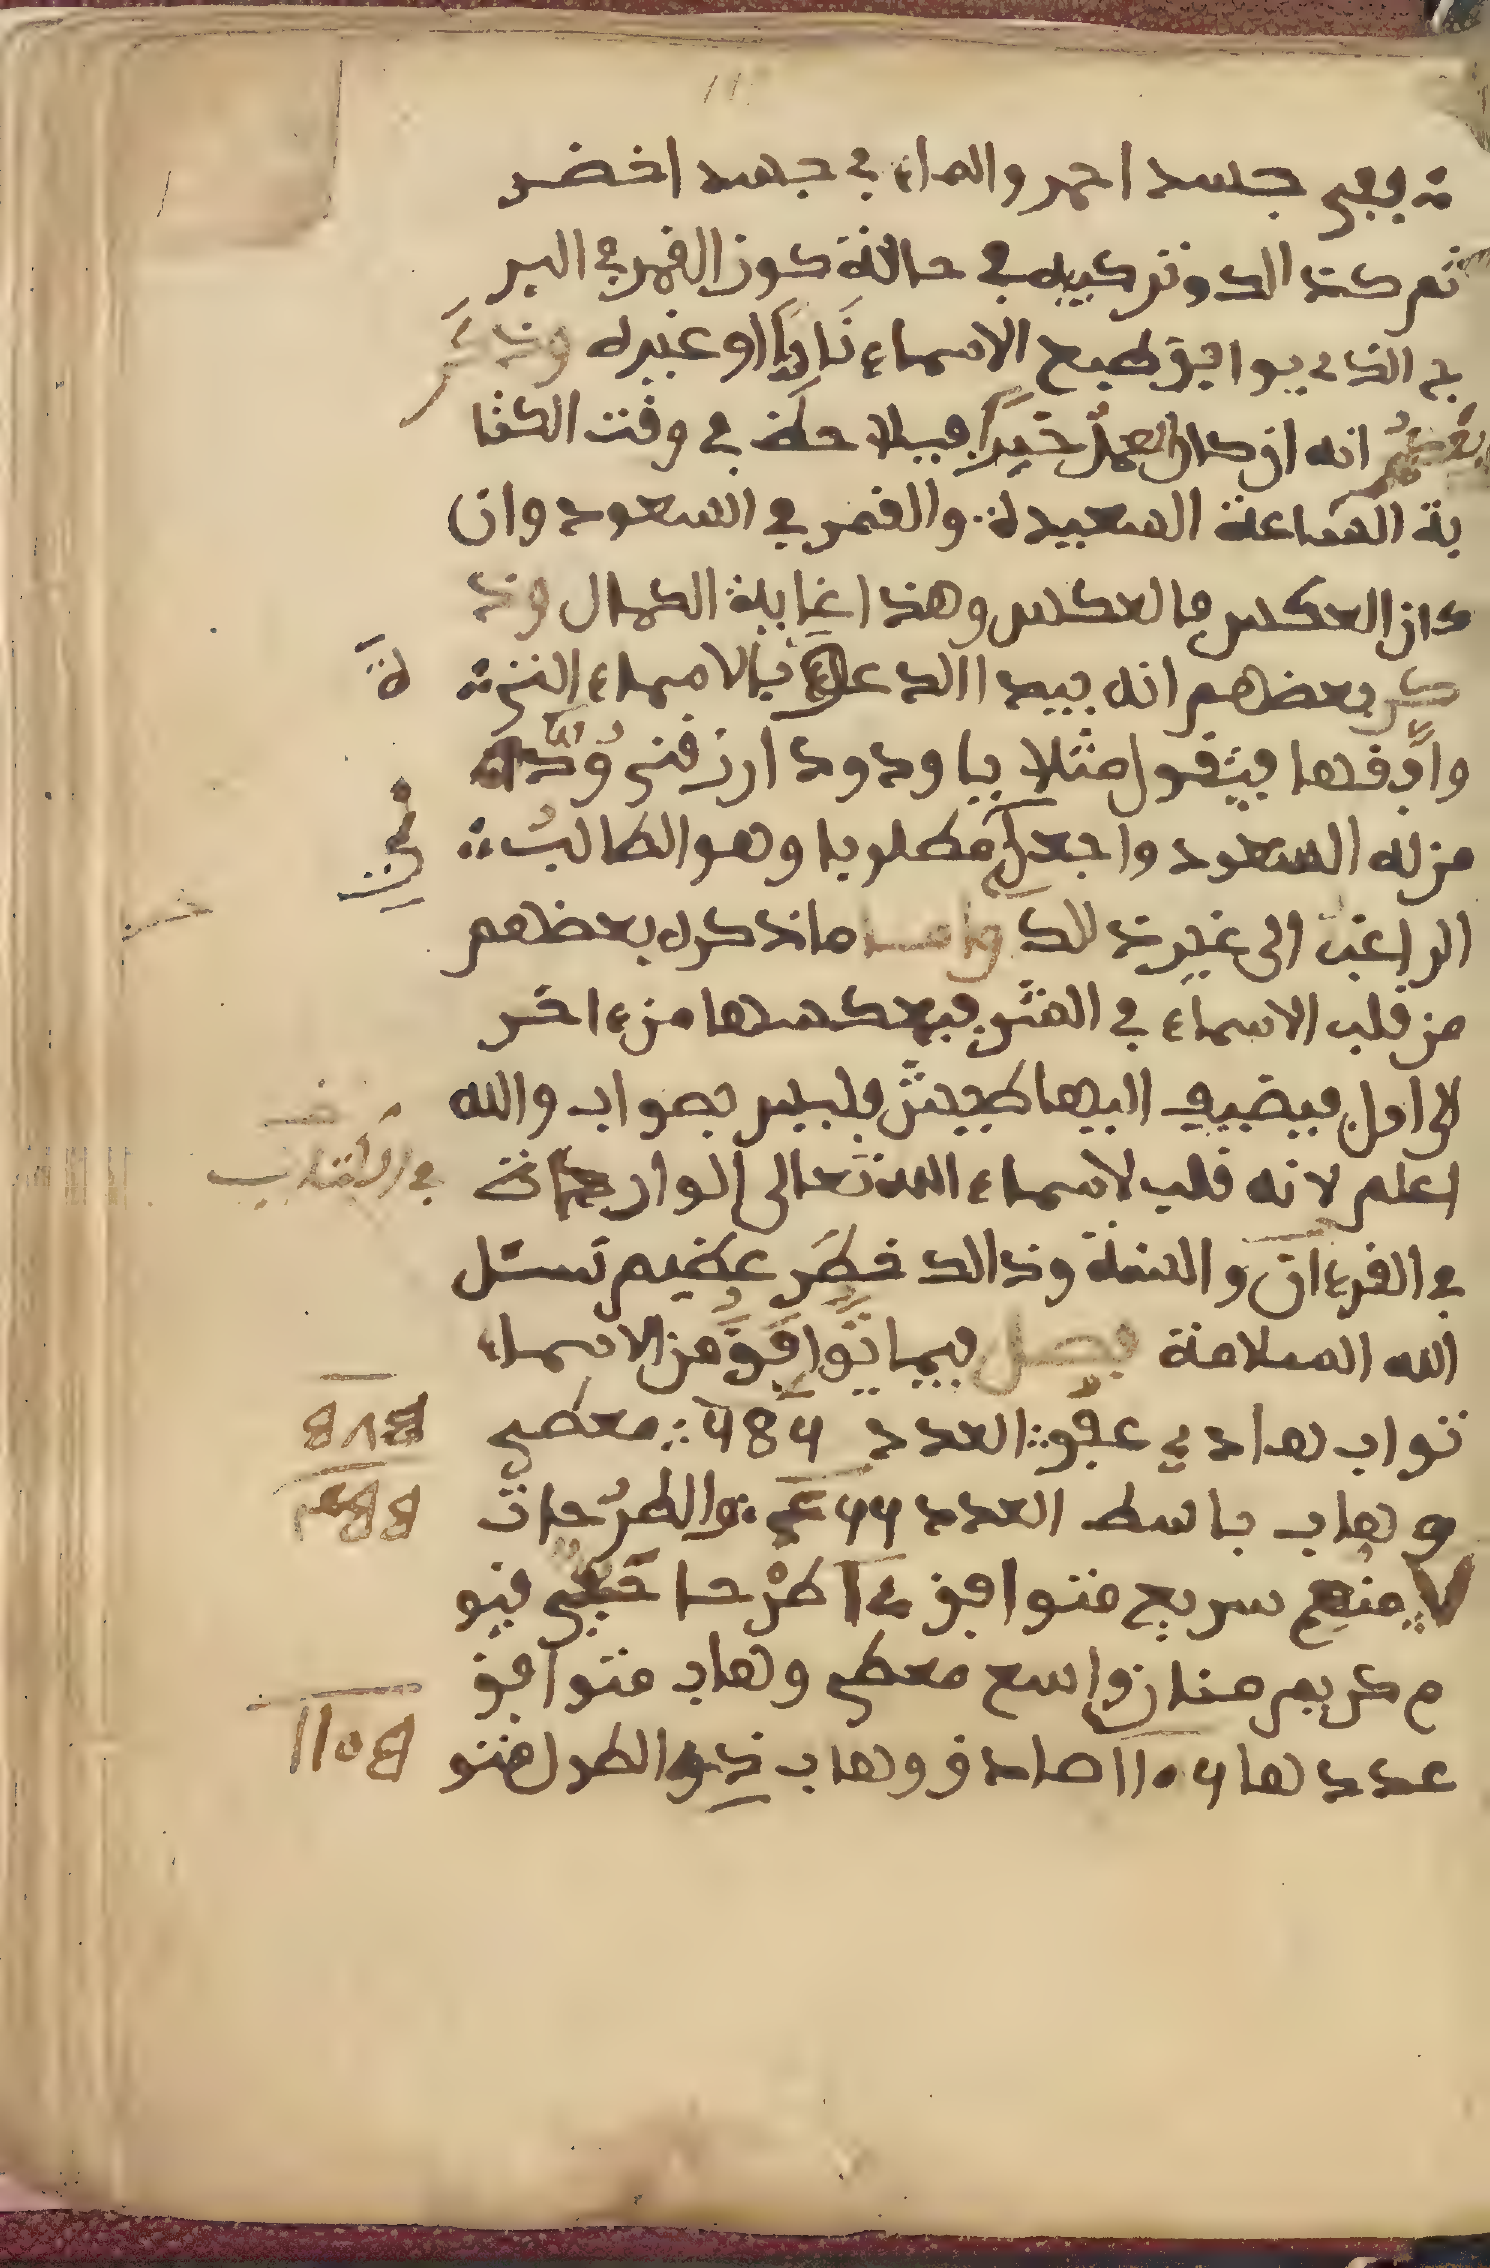 ة ففي جسد احمر والماء في جسد اخضر
ثم كذالك وتركيبه في حالة كون القمر في البر
ج الذي يوافق طبع الاسماء نَارِيًّا او غيره وذكَرَ
بعضهم انه ان كان العملُ خَيْرًا فيلاحظ في وقت الكتا
بة الساعة السعيدة والقمر في السعود وان
كان العكس فالعكس وهذا غاية الكمال وذ
كر بعضهم انه يبدا الدعاء بالاسماء التي ةَ
وافقها فيقول مثلا يا ودود ارزقني وُدَّ
من له السعود واجعل مطلوبا وهو الطالبُ في
الراغب الى غير ذالك واما ما ذكره بعضهم
من قلب الاسماء في الشر فيعكسها من ءاخر
لاول فيضيف اليها طيش فليس بصواب والله
اعلم لانه قلب لاسماء الله تعالى الواردة في الكتاب
في القرءان والسنة وذالك خطَر عظيم نسئل
الله السلامة فصل فيما توافَقَ من الاسماء
تواب هادي عفو العدد 484 معطي
وهاب باسط العدد والطرحات
سريع متوافق طرحا قيو
م كريم منان واسع معطي وهاب متوافق
عددها 1104 صادق وهاب ذو الطول متو